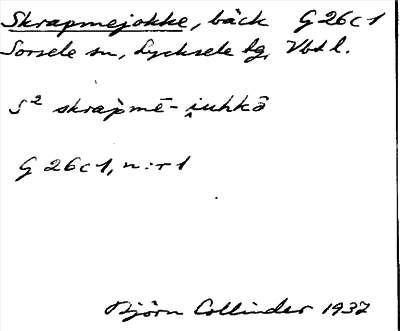 Skrapmejokke, bäck G 26c1
Sorsele sn, Lycksele lg, Vbtl.
S² skrap̀mē-i̯uhkō
G 26c1, n:r 1
Björn Collinder 1937